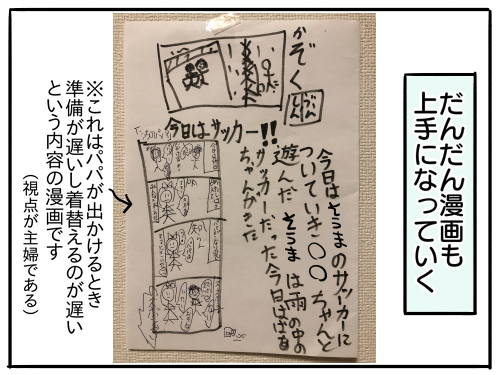 だんだん漫画も
上手になっていく
かぞく
しん
ぶん
今日はサッカー!!
今日はそうまのサッカーに
ついていき○○ちゃんと
遊んだ そうま は雨の中の
サッカーだった今日はばぁ
ちゃんがきた
※これはパパが出かけるとき
準備が遅いし着替えるのが遅い
という内容の漫画です
(視点が主婦である)